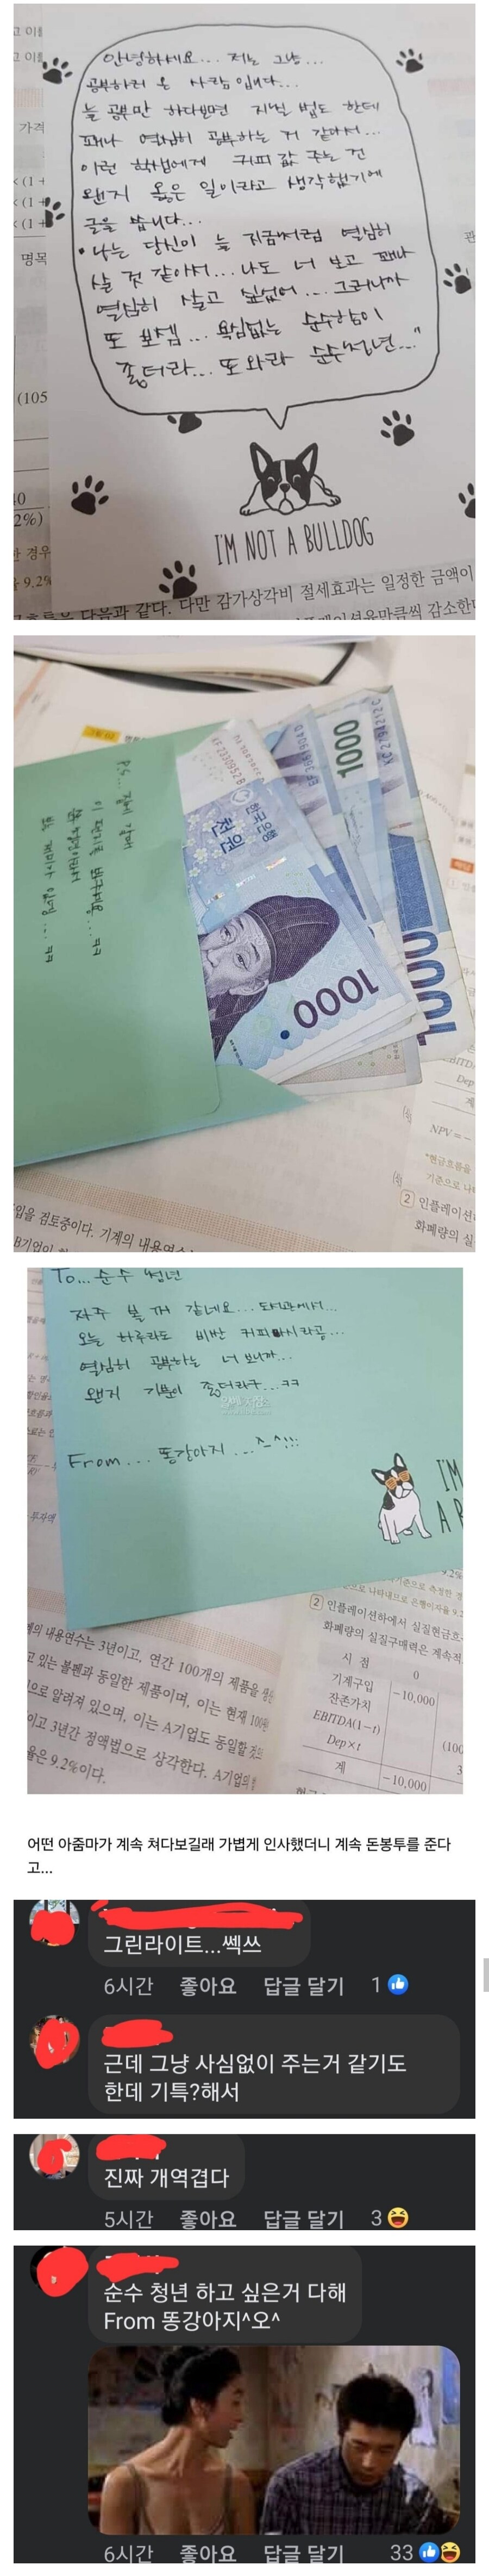 안녕하세요... 저는 그냥...
공부하러 온 사람입니다...
늘 공부만 하다보면 지칠 법도 한데
꽤나 열심히 공부하는 거 같아서...
이런 학생에게 커피값 주는 건
왠지 옳은 일이라고 생각했기에
글을 씁니다...
"나는 당신이 늘 지금처럼 열심히
살 것 같아서... 나도 너 보고 꽤나
열심히 살고 싶었어... 그러니까
또 보셈... 욕심없는 순수함이
좋더라... 또 와라 순수청년..."
I'M NOT A BULLDOG
가격
명목
(105
2%)
한 경우
9.2%
다음과 같다. 다만 감가상각비 절세효과는 일정한 금액이
만큼씩 감소한
P.S...
1000
한국은행
천원
1000
1000
NPV = -
2 인플레이션
화폐량의 실
입을 검토중이다. 기계의 내용연수는
B기업이
To... 순수 청년
자주 볼 꺼 같네요... 도서관에서...
오늘 하루라도 비싼 커피마시라공...
열심히 공부하는 너 보니까...
왠지 기분이 좋더라구...ㅋㅋ
From... 똥강아지...^_^!!!
I'M
A B
투자액
9.2%
2 인플레이션하에서 실질현금흐
화폐량의 실질구매력은 계속적
시 점 0
기계구입 -10,000
잔존가치
EBITDA(1-t)
Dep×t (100
계 -10,000 3
의 내용연수는 3년이고, 연간 100개의 제품을 생산
고 있는 볼펜과 동일한 제품이며, 이는 현재 100원
으로 알려져 있으며, 이는 A기업도 동일할 것으
이고 3년간 정액법으로 상각한다. A기업의
율은 9.2%이다.
어떤 아줌마가 계속 쳐다보길래 가볍게 인사했더니 계속 돈봉투를 준다
고...
그린라이트...쎅쓰
6시간 좋아요 답글 달기 1
근데 그냥 사심없이 주는거 같기도
한데 기특?해서
진짜 개역겹다
5시간 좋아요 답글 달기 3
순수 청년 하고 싶은거 다해
From 똥강아지^오^
6시간 좋아요 답글 달기 33